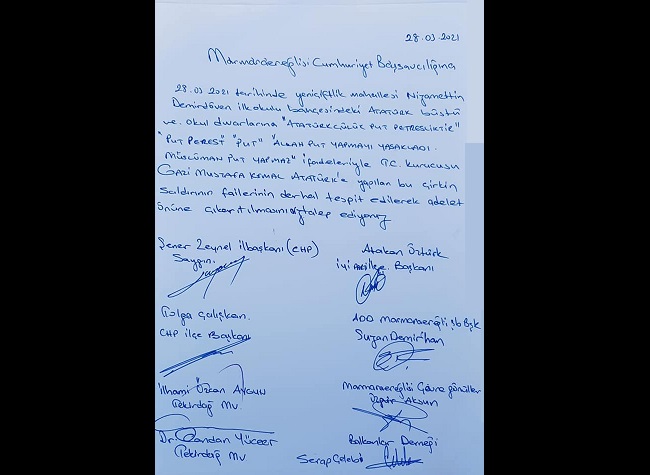 28.03.2021
Marmaraereğlisi Cumhuriyet Başsavcılığına
28.03.2021 tarihinde yeniçiftlik mahallesi Nizamettin
Demirdöven ilkokulu bahçesindeki ATATÜRK büstü
ve okul duvarlarına "ATATÜRKÇÜLÜK PUT PETRESLİKTİR"
"PUT PEREST" "PUT" "ALLAH PUT YAPMAYI YASAKLADI.
MÜSLÜMAN PUT YAPMAZ" ifadeleriyle T.C. kurucusu
GAZİ MUSTAFA KEMAL ATATÜRK'e yapılan bu çirkin
saldırının faillerinin derhal tespit edilerek adalet
önüne çıkartılmasını talep ediyoruz
Şener Zeynel ilbaşkanı (CHP)
Saygın.
Atakan Öztürk
iyi Parti ilçe Başkanı
Tolga Çalışkan.
CHP ilçe Başkanı
ADD Marmaraereğli şb Bşk
Suzan Demirhan
İlhami Özkan Aygun
Tekirdağ Mv.
Marmaraereğlisi Çevre gönülleri
Özgür Aksun
Dr. Candan Yüceer
Tekirdağ MV
Balkanlar Derneği
Serap Çelebi